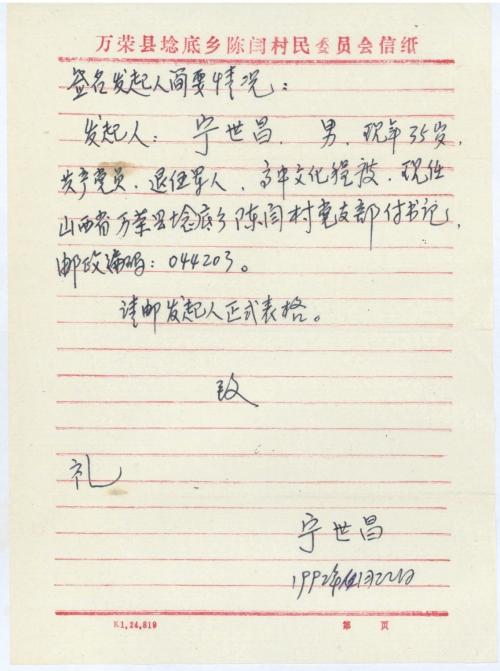 万荣县埝底乡陈闫村民委员会信纸
签名发起人简要情况：
发起人：宁世昌，男，现年35岁，
共产党员，退伍军人，高中文化程度，现任
山西省万荣县埝底乡陈闫村党支部付书记，
邮政编码：044203。
请邮发起人正式表格。
致
礼
宁世昌
1992年月22日
K1,24,819
第 页